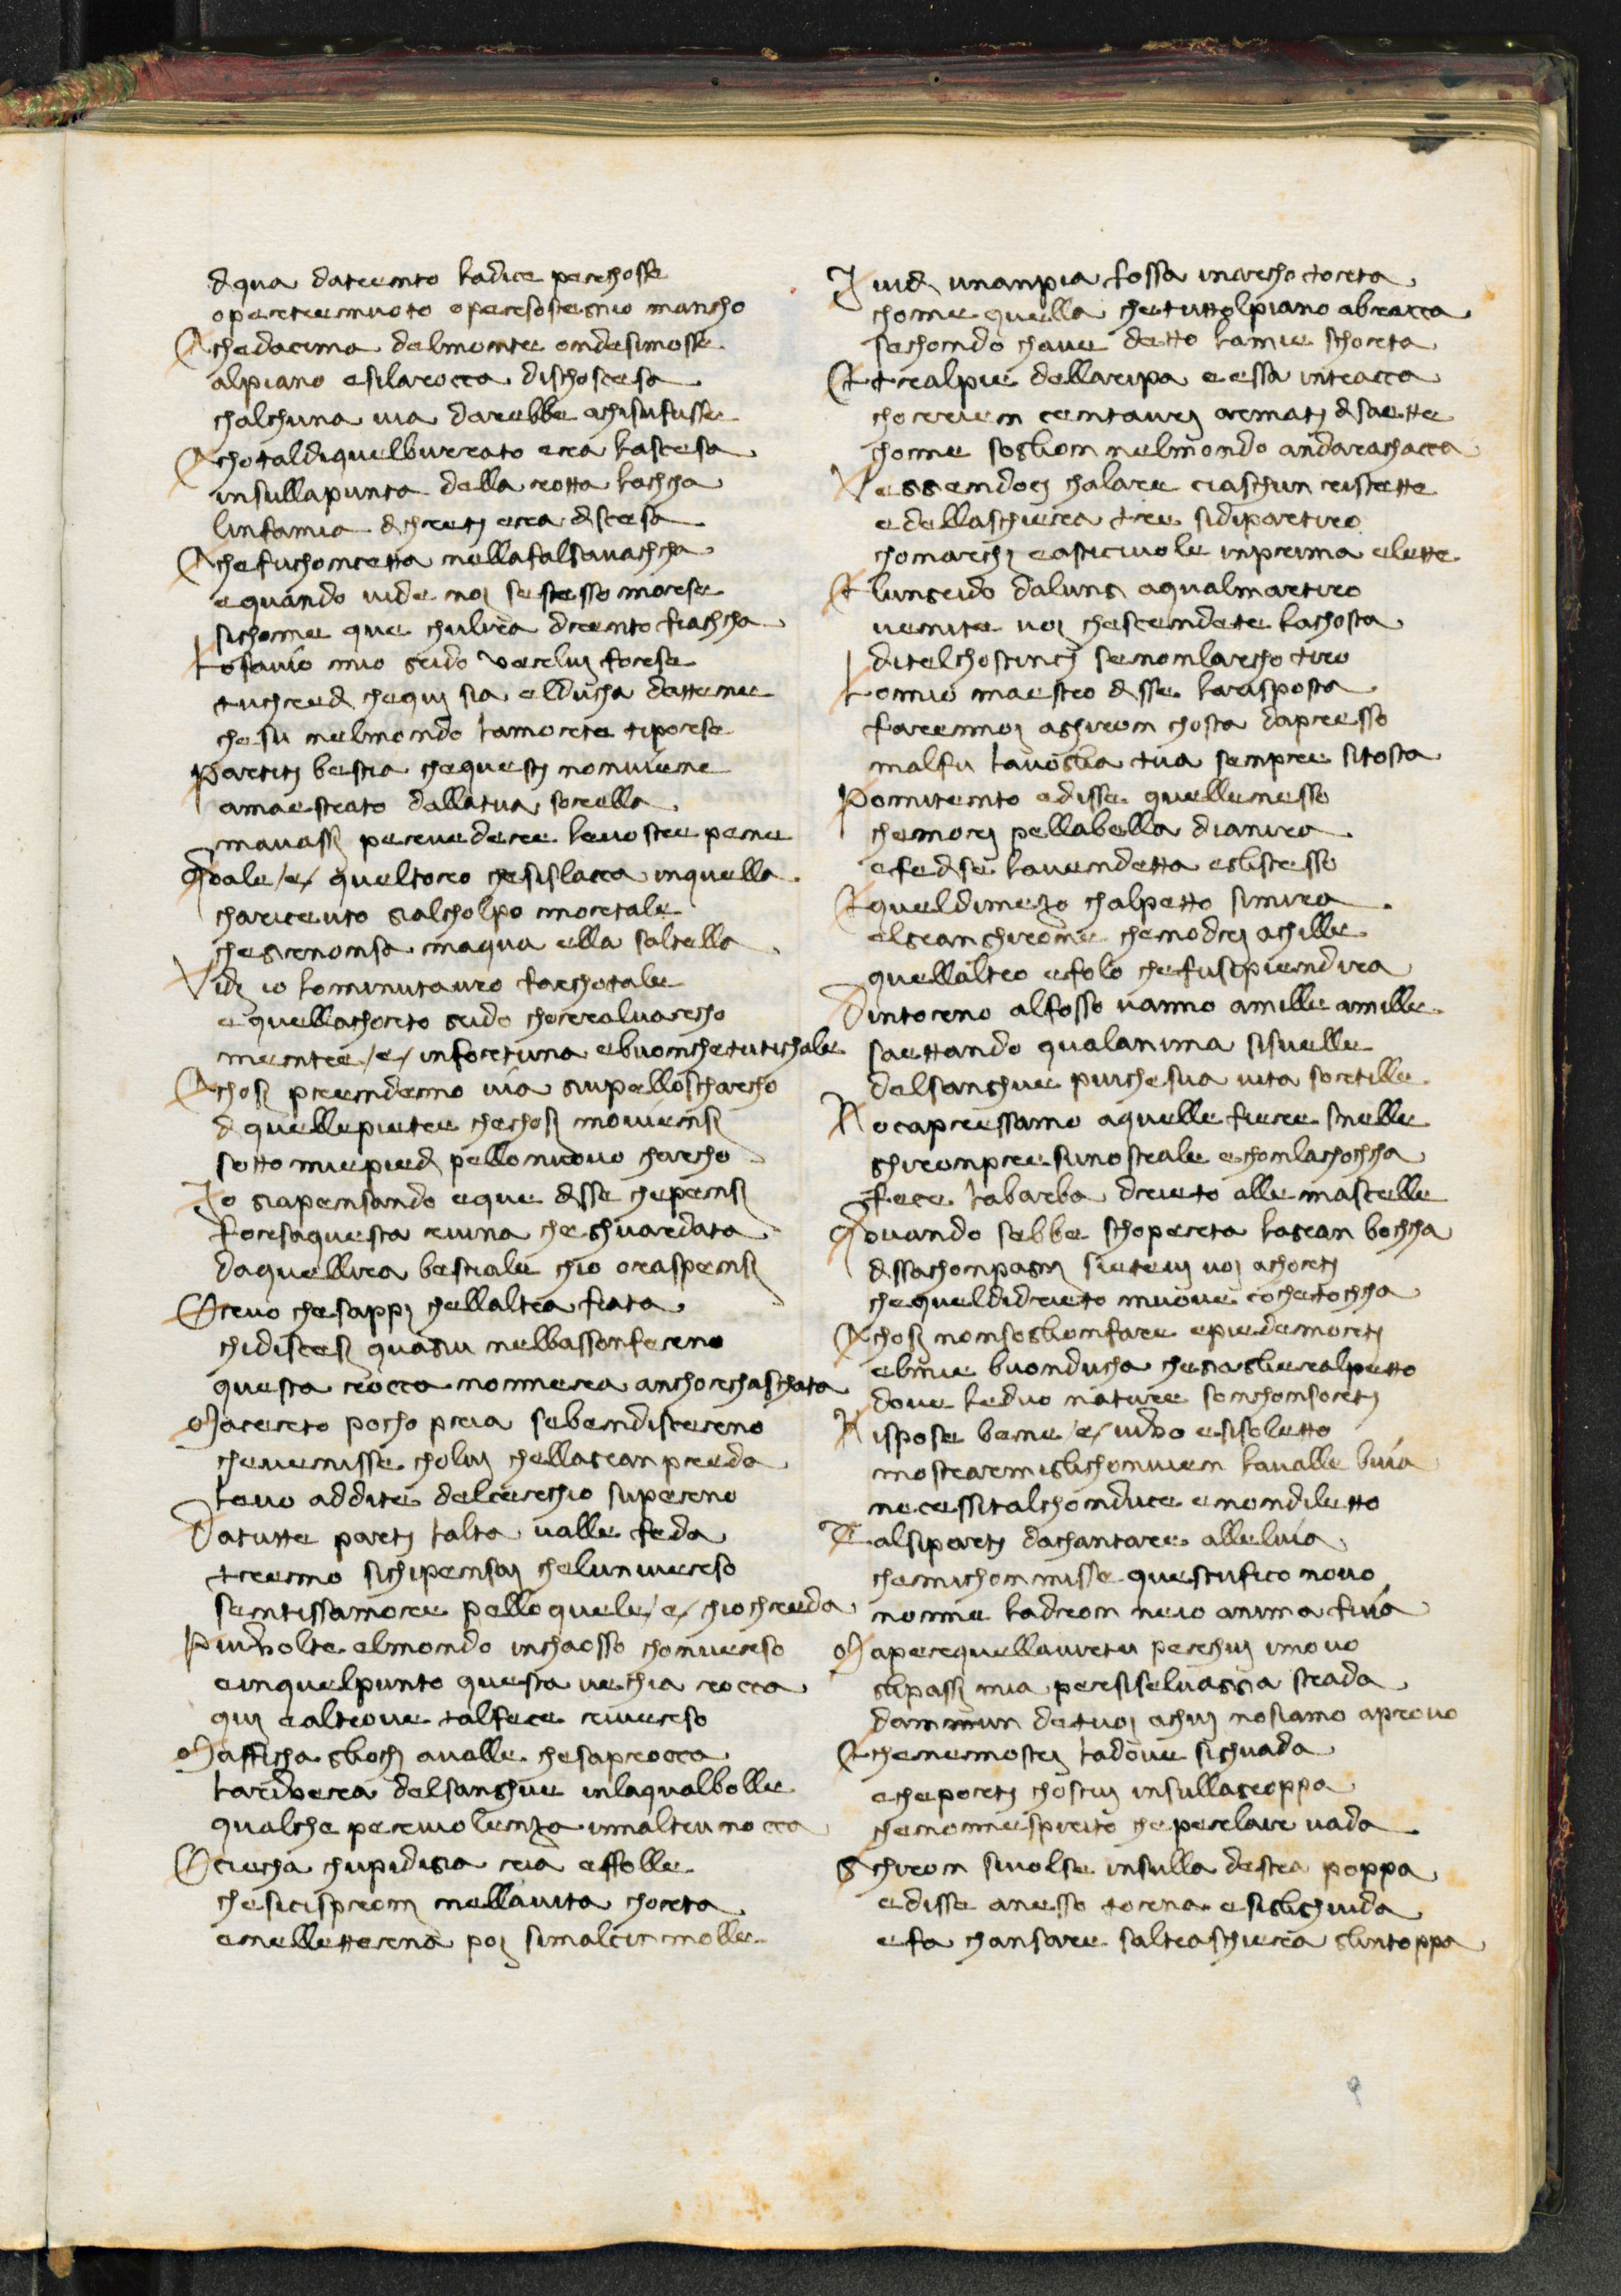 dqua datrento ladice perchosse
opertremuoto opersostegnio mancho
Chedacima delmonte ondesimosse
alpiano esilarocca dischoscesa
chalchuna uia darebbe achisufusse
Chotaldiquelburrato era lascesa
insullapunta della rotta lachcha
linfamia dchretj era dscesa
Chefuchoncetta nellafalsauachcha
equando uide noj sestesso morse
sichome que chulira drento fiachcha
Losauio mio grido verluj forse
tuchredj chequj sia elducha dattene
che su nelmondo lamorte tiporse
Partitj bestia chequestj nonuiene
amaestrato dallatua sorella
mauassj peruedere leuostre pene
Quale /e/ queltoro chesislacca inquella
chariceuto gialcholpo mortale
chegrenonsa maqua ella saltella
Vidj io lominutauro farchotale
equellachorto grido chorrealuarcho
mentre /e/ infortuna ebuonchetutichale
Chosj prendemo uia giupelloscharcho
dquellepietre chechosj mouiensj
sotto miepiedj pellonuouo charcho
Io giapensando eque disse chepensj
forsaquesta ruina cheghuardata
daquellira bestiale chio oraspensj
Oruo chesappj chellaltra fiata
chidiscesj quagiu nelbassonferno
questa rocca nonnera anchorchaschata
Macerto pocho pria sebendiscerno
cheuenisse choluj chellagran preda
leuo addite delcerchio superno
Datutte partj lalta ualle feda
tremo sichipensaj cheluniuerso
sentissamore pello quele /e/ chiochreda
Piuvolte elmondo inchaosso chonuerso
einquelpunto questa uechia rocca
quj ealtroue talfece riuerso
Mafficha gliochj aualle chesaprocca
lariviera delsanghue inlaqualbolle
qualche peruiolenza innaltru nocca
Ociecha chupidigia ria effolle
chesicispronj nellauita chorta
enelletterna poj simalcinmolle
Iuidj unanpia fossa inarcho torta
chome quella chetuttolpiano abracca
sechondo chaue detto lamie schorta
Etrealpie dellaripa e essa intracca
chorrien centaurj armatj dsaette
chome soglion nelmondo andarachacca
Veggendocj chalare ciaschun ristette
e dellaschiera tre sidipartiro
chonarchj easticiuole inprima elette
Elungrido dalungj aqualmartiro
uenite uoj chescendete lachosta
ditelchostincj senonlarcho tiro
Lomio maestro disse larisposta
farennoj aghiron chosta dapresso
malfu lauoglia tua sempre sitosta
Pomitento edisse quellenesso
chemorj pellabella dianira
efedse lauendetta eglistesso
Equeldimezo chalpetto simira
elgranghirone chenodrj achille
quellaltro efolo chefusipiendira
Dintorno alfosso uanno amille amille
saettando qualanima sisuelle
delsanghue piuchesua uita sortille
Nocapressamo aquelle fiere snelle
ghironprese sunostrale echonlachochcha
fece labarba drieto alle mascelle
Quando sebbe schoperta lagran bochcha
dssachonpagnj sieteuj uoj achortj
chequeldidrieto muoue coche tochcha
Chosj nonsoglionfare epiedemortj
elmie buonducha chegiaglieralpetto
doue ledue nature sonchonsortj
Rispose bene /e/ uiuo esisoletto
mostrarmiglichonuien laualle buia
necessitalchonduce enondiletto
Talsipartj dachantare alleluia
chemichonmisse questuficio nouo
nonne ladron neio anima fuia
Maperquellauirtu perchuj imouo
glipassj mia persiseluaggia strada
dammun detuoj achuj nosiamo aprouo
Echenemostrj ladoue sighuada
echeportj chostuj insullagroppa
chenonnespirito cheperlaire uada
Ghiron siuolse insulla destra poppa
edisse anesso torna esiglighuida
efa chansare saltraschiera glintoppa
9